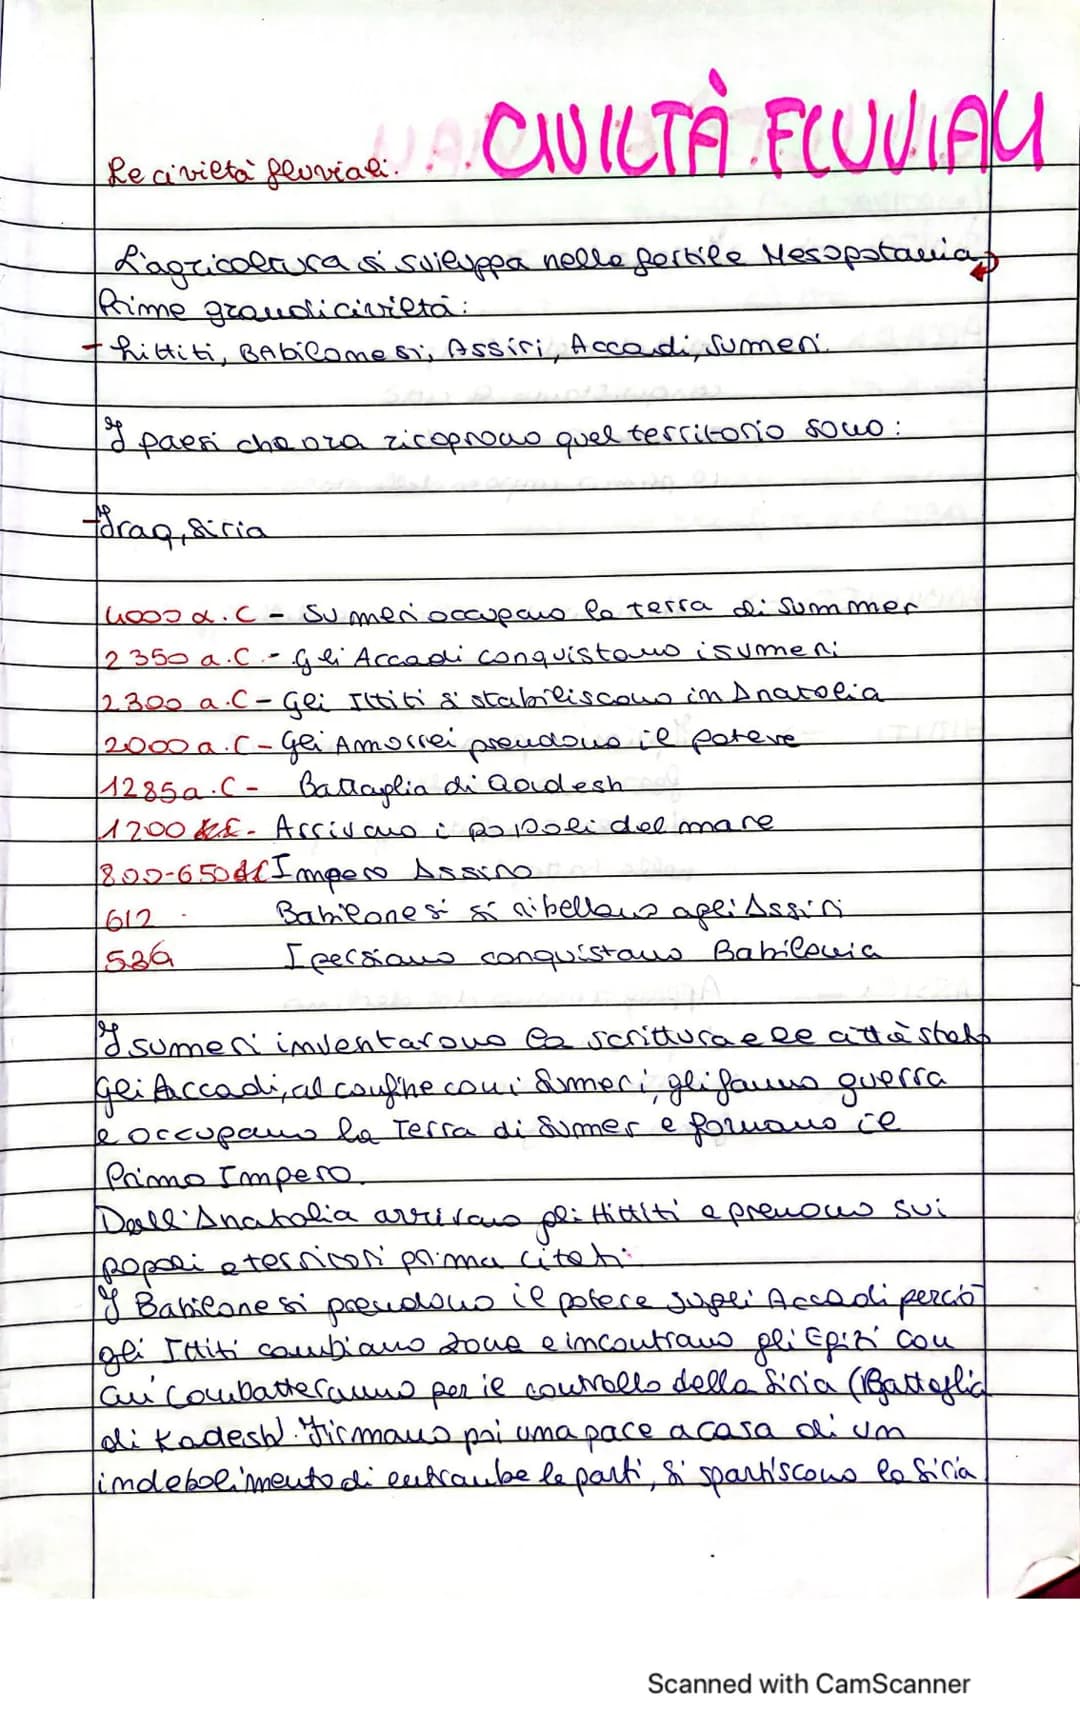 CIVILTÀ FLUVIALI
Le civiltà fluviali.
L'agricoltura si sviluppa nella fertile Mesopotamia
Prime grandi civiltà:
- hittiti, BAbilonesi, Assiri, Accadi, Sumeri.
I paesi che ora ricoprono quel territorio sono:
- Iraq, Siria
4000 a.C - Sumeri occupano la terra di Summer
2350 a.C. - Gli Accadi conquistano i sumeri
2300 a.C - Gli Ittiti si stabiliscono in Anatolia
2000 a.C - Gli Amorrei prendono il potere
1285 a.C - Battaglia di Qadesh
1200 - Arrivano i popoli del mare
800-650 Impero Assiro
612 Babilonesi si ribellano agli Assiri
I persiano conquistano Babilonia
I sumeri inventarono la scrittura e le città stato
gli Accadi, al confine con i Sumeri, gli fanno guerra
e occupano la Terra di Sumer e formano il
Primo Impero.
Dall'Anatolia arrivano gli Hittiti e prenono sui
popoli e territori prima citati.
I Babilonesi prendono il potere sugli Accadi perciò
gli Ittiti cambiano zona e incontrano gli Egizi con
cui combatteranno per il controllo della Siria (Battaglia
di Kadesh). Firmano poi una pace a casa di un
indebolimento di entrambe le parti, si spartiscono la Siria
Scanned with CamScanner